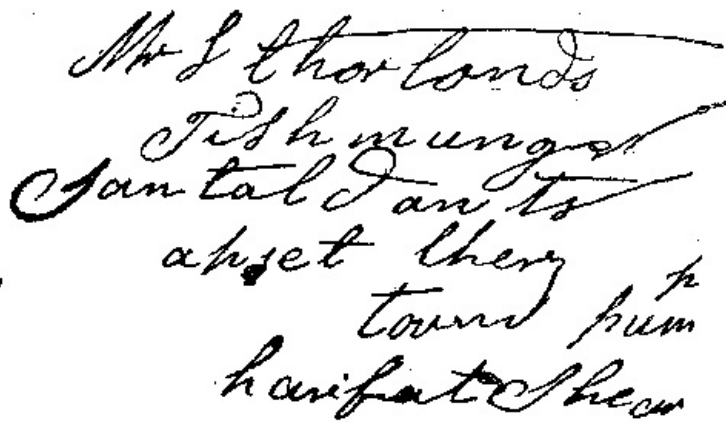 Mr S thorlonds
Fishmunger
Santaldants
apset thery
tound pum p
harifat Shear